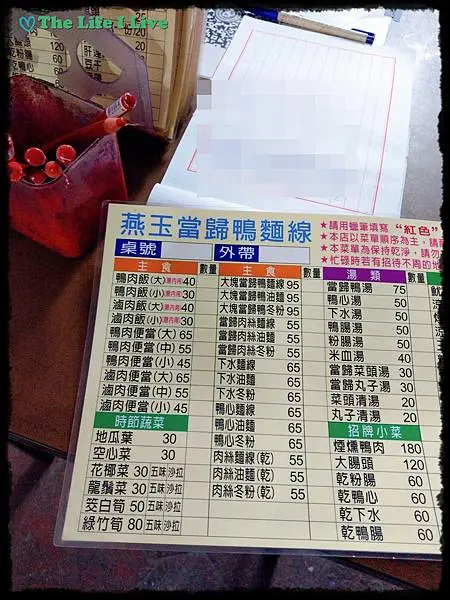 ♡The Life I Live
120
60
60
肝連
豆干
燕玉當歸鴨麵線
★請用蠟筆填寫“紅色”
★本店以菜單順序為主，請
★本菜單為保持乾淨，請勿
★忙碌時若有招待不周的地
桌號 外帶
主食 數量 主食 數量 湯類 數量
鴨肉飯(大)湯內用40 大塊當歸鴨麵線95 當歸鴨湯 75
鴨肉飯(小)湯內用30 大塊當歸鴨油麵95 鴨心湯 50
滷肉飯(大)湯內用40 大塊當歸鴨冬粉95 下水湯 50
滷肉飯(小)湯內用30 當歸肉絲麵線 55 鴨腸湯 50
鴨肉便當(大) 65 當歸肉絲油麵 55 粉腸湯 50
鴨肉便當(中) 55 當歸肉絲冬粉 55 米血湯 40
鴨肉便當(小) 45 下水麵線 65 當歸菜頭湯 30
滷肉便當(大) 65 下水油麵 65 當歸丸子湯 30
滷肉便當(中) 55 下水冬粉 65 菜頭清湯 20
滷肉便當(小) 45 鴨心麵線 65 丸子清湯 20
時節蔬菜 鴨心油麵 65 招牌小菜
地瓜葉 30 鴨心冬粉 65 煙燻鴨肉 180
空心菜 30 肉絲麵線(乾) 55 大腸頭 120
花椰菜 30 五味 沙拉 肉絲油麵(乾) 55 乾粉腸 60
龍鬚菜 30 五味 沙拉 肉絲冬粉(乾) 55 乾鴨心 60
筊白筍 50 五味 沙拉 乾下水 60
綠竹筍 80 五味 沙拉 乾鴨腸 60